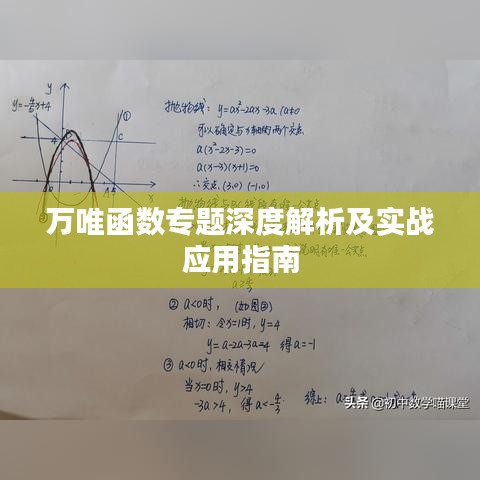 y=-4/5x+4
y
①
C
A
抛物线: y=ax²-2ax-3a (a≠0)
可以确定与x轴的两个交点
a(x²-2x-3)=0
a(x-3)(x+1)=0
∴交点 (3,0) (-1,0)
万唯函数专题深度解析及实战
应用指南
② a<0时, (如图②)
相切: 令x=1时, y=4
y=a-2a-3a=4 得a=-1
③ a<0时, 相交情况
当x=0时, y>4
-3a>4, 得a<-4/3
综上:
头条 @初中数学喵课堂